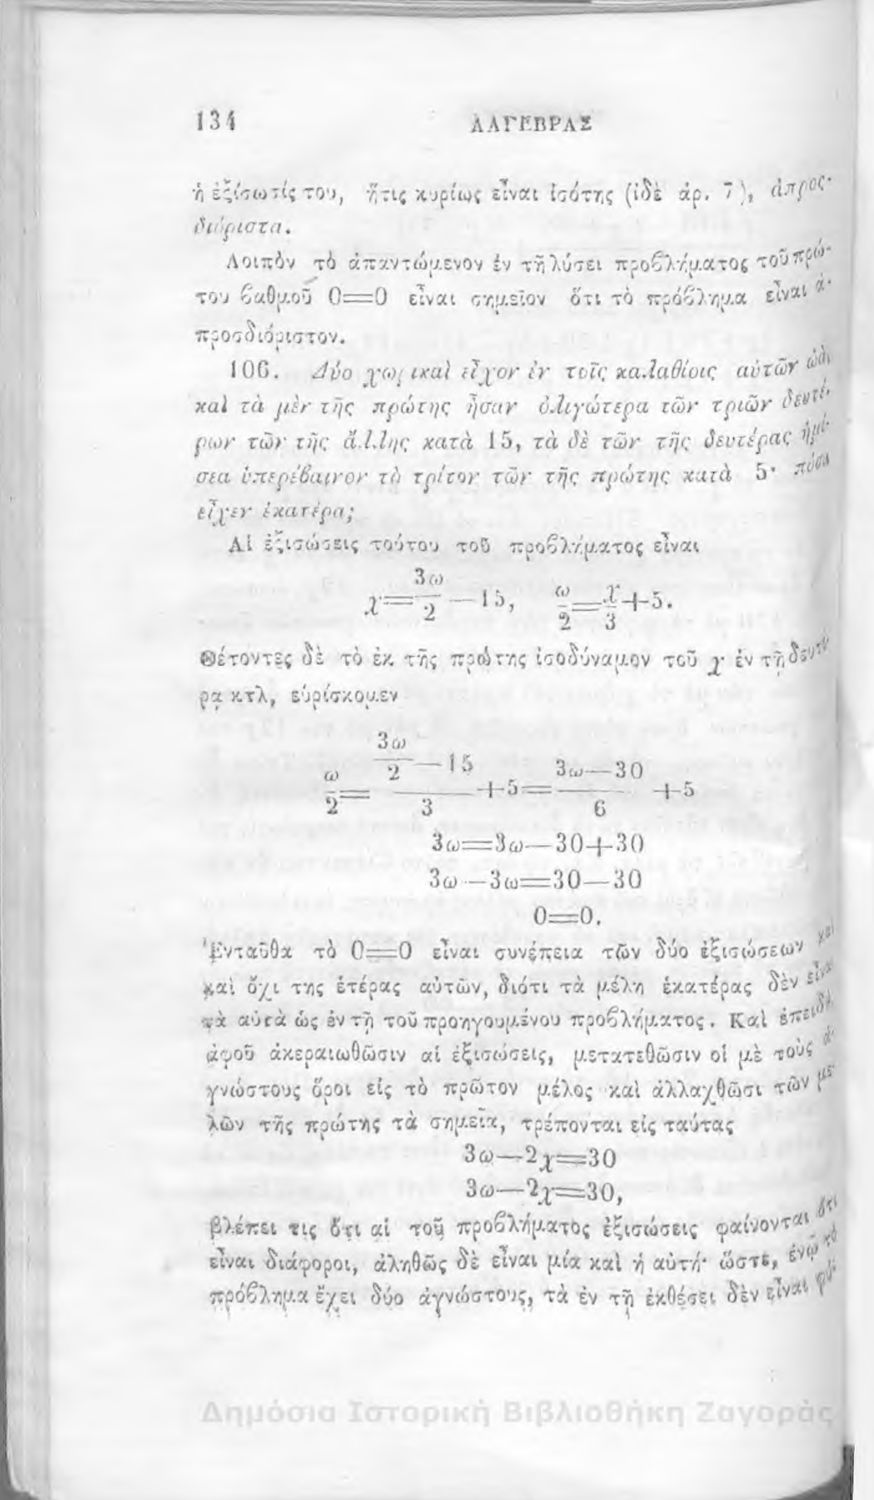 134 ΑΛΓΕΒΡΑΣ
ἡ ἐξίσωσίς του, ἥτις κυρίως εἶναι ἰσότης (ἰδὲ ἀρ. 7), ἀπροσ-
διόριστα.
Λοιπὸν τὸ ἀπαντώμενον ἐν τῇ λύσει προβλήματος τοῦ πρώ-
του βαθμοῦ 0=0 εἶναι σημεῖον ὅτι τὸ πρόβλημα εἶναι ἀ-
προσδιόριστον.
106. Δύο χωρικαὶ εἶχον ἐν τοῖς καλαθίοις αὑτῶν ὠὰ
καὶ τὰ μὲν τῆς πρώτης ἦσαν ὀλιγώτερα τῶν τριῶν δευτέ-
ρων τῶν τῆς ἄλλης κατὰ 15, τὰ δὲ τῶν τῆς δευτέρας ἡμί-
σεα ὑπερέβαινον τὸ τρίτον τῶν τῆς πρώτης κατὰ 5· πόσα
εἶχεν ἑκατέρα;
Αἱ ἐξισώσεις τούτου τοῦ προβλήματος εἶναι
χ=3ω/2—15, ω/2=χ/3+5.
Θέτοντες δὲ τὸ ἐκ τῆς πρώτης ἰσοδύναμον τοῦ χ ἐν τῇ δευτέ-
ρᾳ κτλ, εὑρίσκομεν
ω/2=(3ω/2—15)/3+5=(3ω—30)/6+5
3ω=3ω—30+30
3ω—3ω=30—30
0=0.
Ἐνταῦθα τὸ 0=0 εἶναι συνέπεια τῶν δύο ἐξισώσεων
καὶ ὄχι της ἑτέρας αὐτῶν, διότι τὰ μέλη ἑκατέρας δὲν εἶναι
τὰ αὐτὰ ὡς ἐν τῇ τοῦ προηγουμένου προβλήματος. Καὶ ἐπειδὴ
ἀφοῦ ἀκεραιωθῶσιν αἱ ἐξισώσεις, μετατεθῶσιν οἱ μὲ τοὺς ἀ-
γνώστους ὅροι εἰς τὸ πρῶτον μέλος καὶ ἀλλαχθῶσι τῶν με-
λῶν τῆς πρώτης τὰ σημεῖα, τρέπονται εἰς ταύτας
3ω—2χ=30
3ω—2χ=30,
βλέπει τις ὅτι αἱ τοῦ προβλήματος ἐξισώσεις φαίνονται ὅτι
εἶναι διάφοροι, ἀληθῶς δὲ εἶναι μία καὶ ἡ αὐτή· ὥστε, ἐνῷ τὸ
πρόβλημα ἔχει δύο ἀγνώστους, τὰ ἐν τῇ ἐκθέσει δὲν εἶναι
Δημόσια Ιστορική Βιβλιοθήκη Ζαγοράς